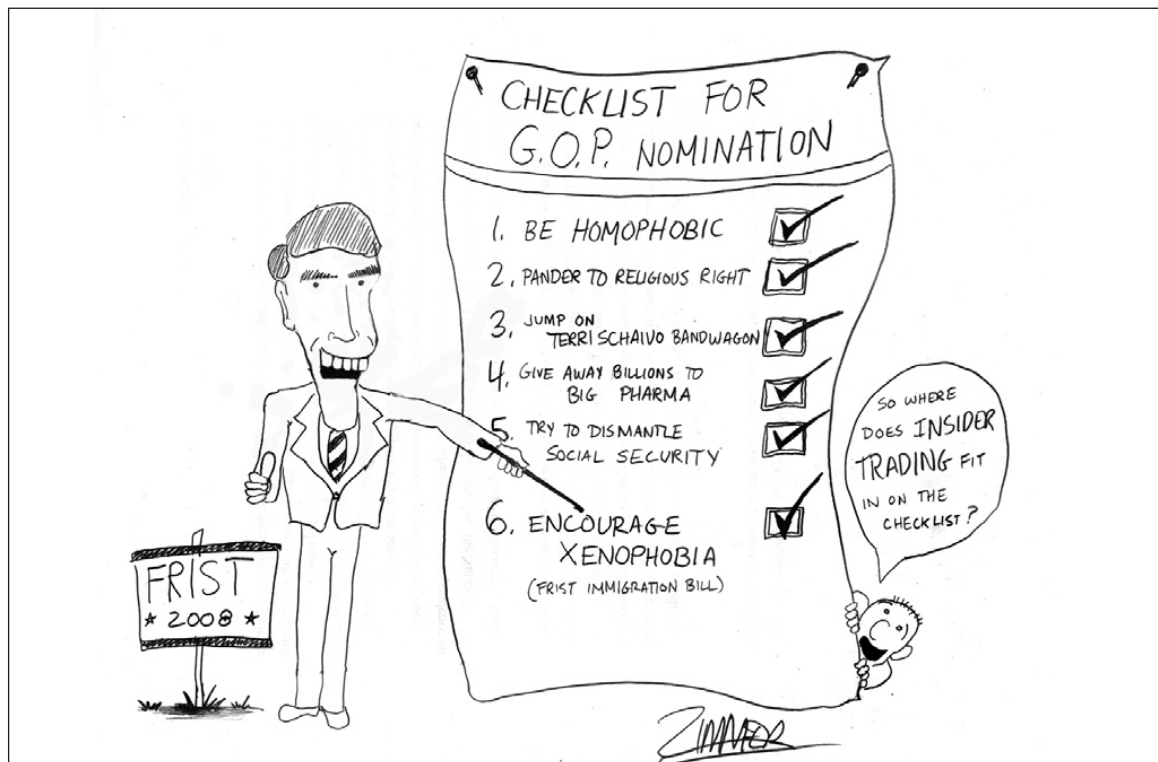 CHECKLIST FOR
G.O.P. NOMINATION
1. BE HOMOPHOBIC
2. PANDER TO RELIGIOUS RIGHT
3. JUMP ON
TERRI SCHAIVO BANDWAGON
4. GIVE AWAY BILLIONS TO
BIG PHARMA
5. TRY TO DISMANTLE
SOCIAL SECURITY
6. ENCOURAGE
XENOPHOBIA
(FRIST IMMIGRATION BILL)
SO WHERE
DOES INSIDER
TRADING FIT
IN ON THE
CHECKLIST?
FRIST
★ 2008 ★
ZIMMER